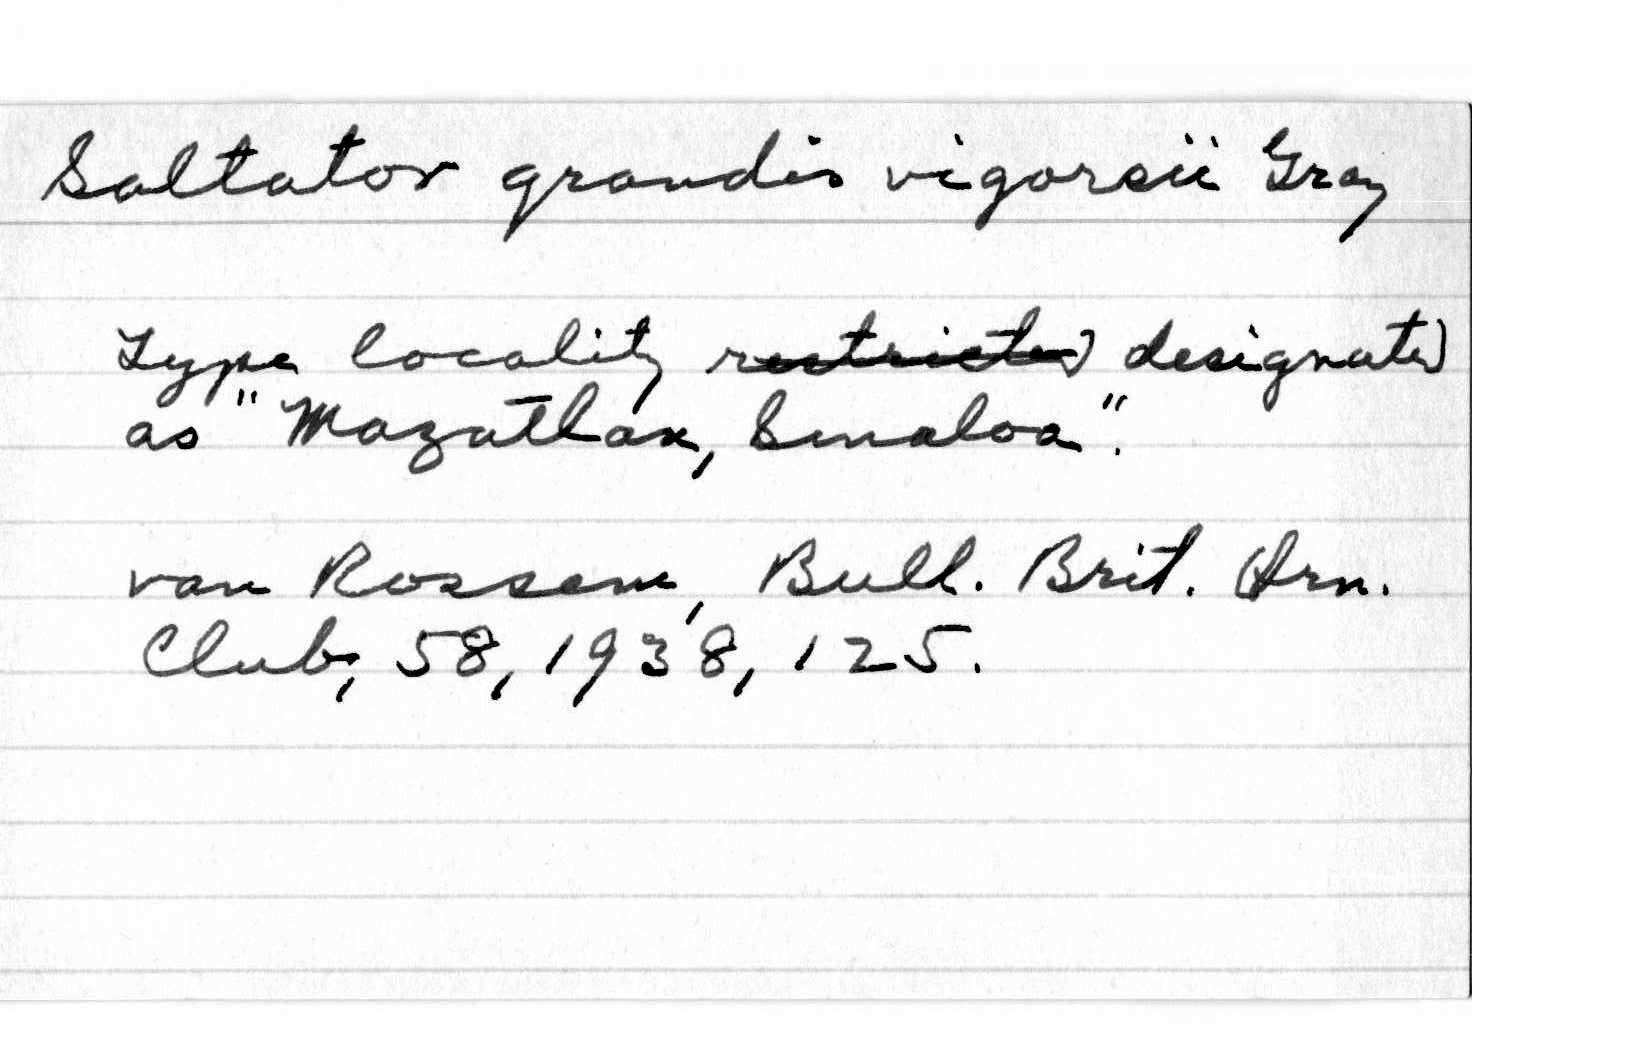 Saltator grandis vigorsii Gray
Type locality restricted designated
as "Mazatlan, Sinaloa".
van Rossem, Bull. Brit. Orn.
Club, 58, 1938, 125.